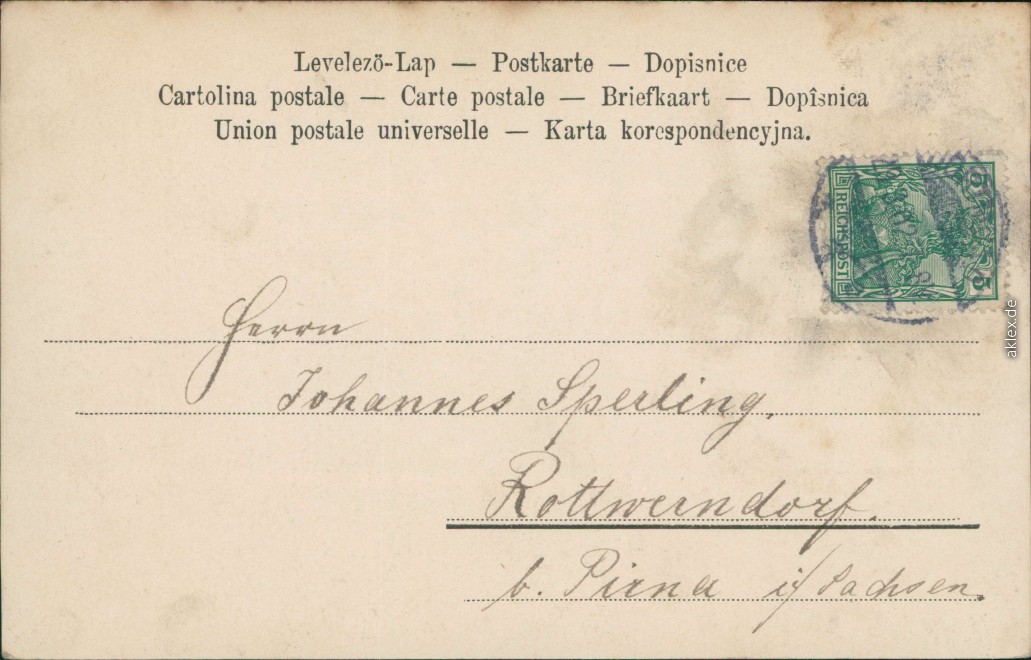 Levelezö-Lap — Postkarte — Dopisnice
Cartolina postale — Carte postale — Briefkaart — Dopîsnica
Union postale universelle — Karta korespondencyjna.
5 REICHSPOST 5
Herrn
Johannes Sperling.
Rottwerndorf.
b. Pirna i/ Sachsen.
aklex.de